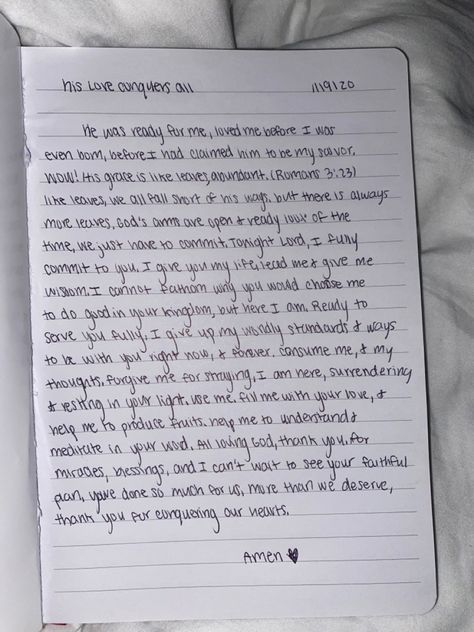 his Love conquers all 1/19/20
He was ready for me, loved me before I was
even born, before I had claimed him to be my savior.
WOW! His grace is like leaves, abundant. (Romans 3:23)
like leaves, we all fall short of his ways. but there is always
more leaves, God's arms are open & ready 100% of the
time, we just have to commit. Tonight Lord, I fully
commit to you. I give you my life, lead me & give me
wisdom. I cannot fathom why you would choose me
to do good in your kingdom, but here I am. Ready to
serve you fully. I give up my worldly standards & ways
to be with you right now, & forever. consume me, & my
thoughts. forgive me for straying, I am here, surrendering
& resting in your light. use me. fill me with your love, &
help me to produce fruits. help me to understand &
meditate in your word. All loving God, thank you. for
miracles, blessings, and I can't wait to see your faithful
plan, you've done so much for us, more than we deserve,
thank you for conquering our hearts.
Amen ♥